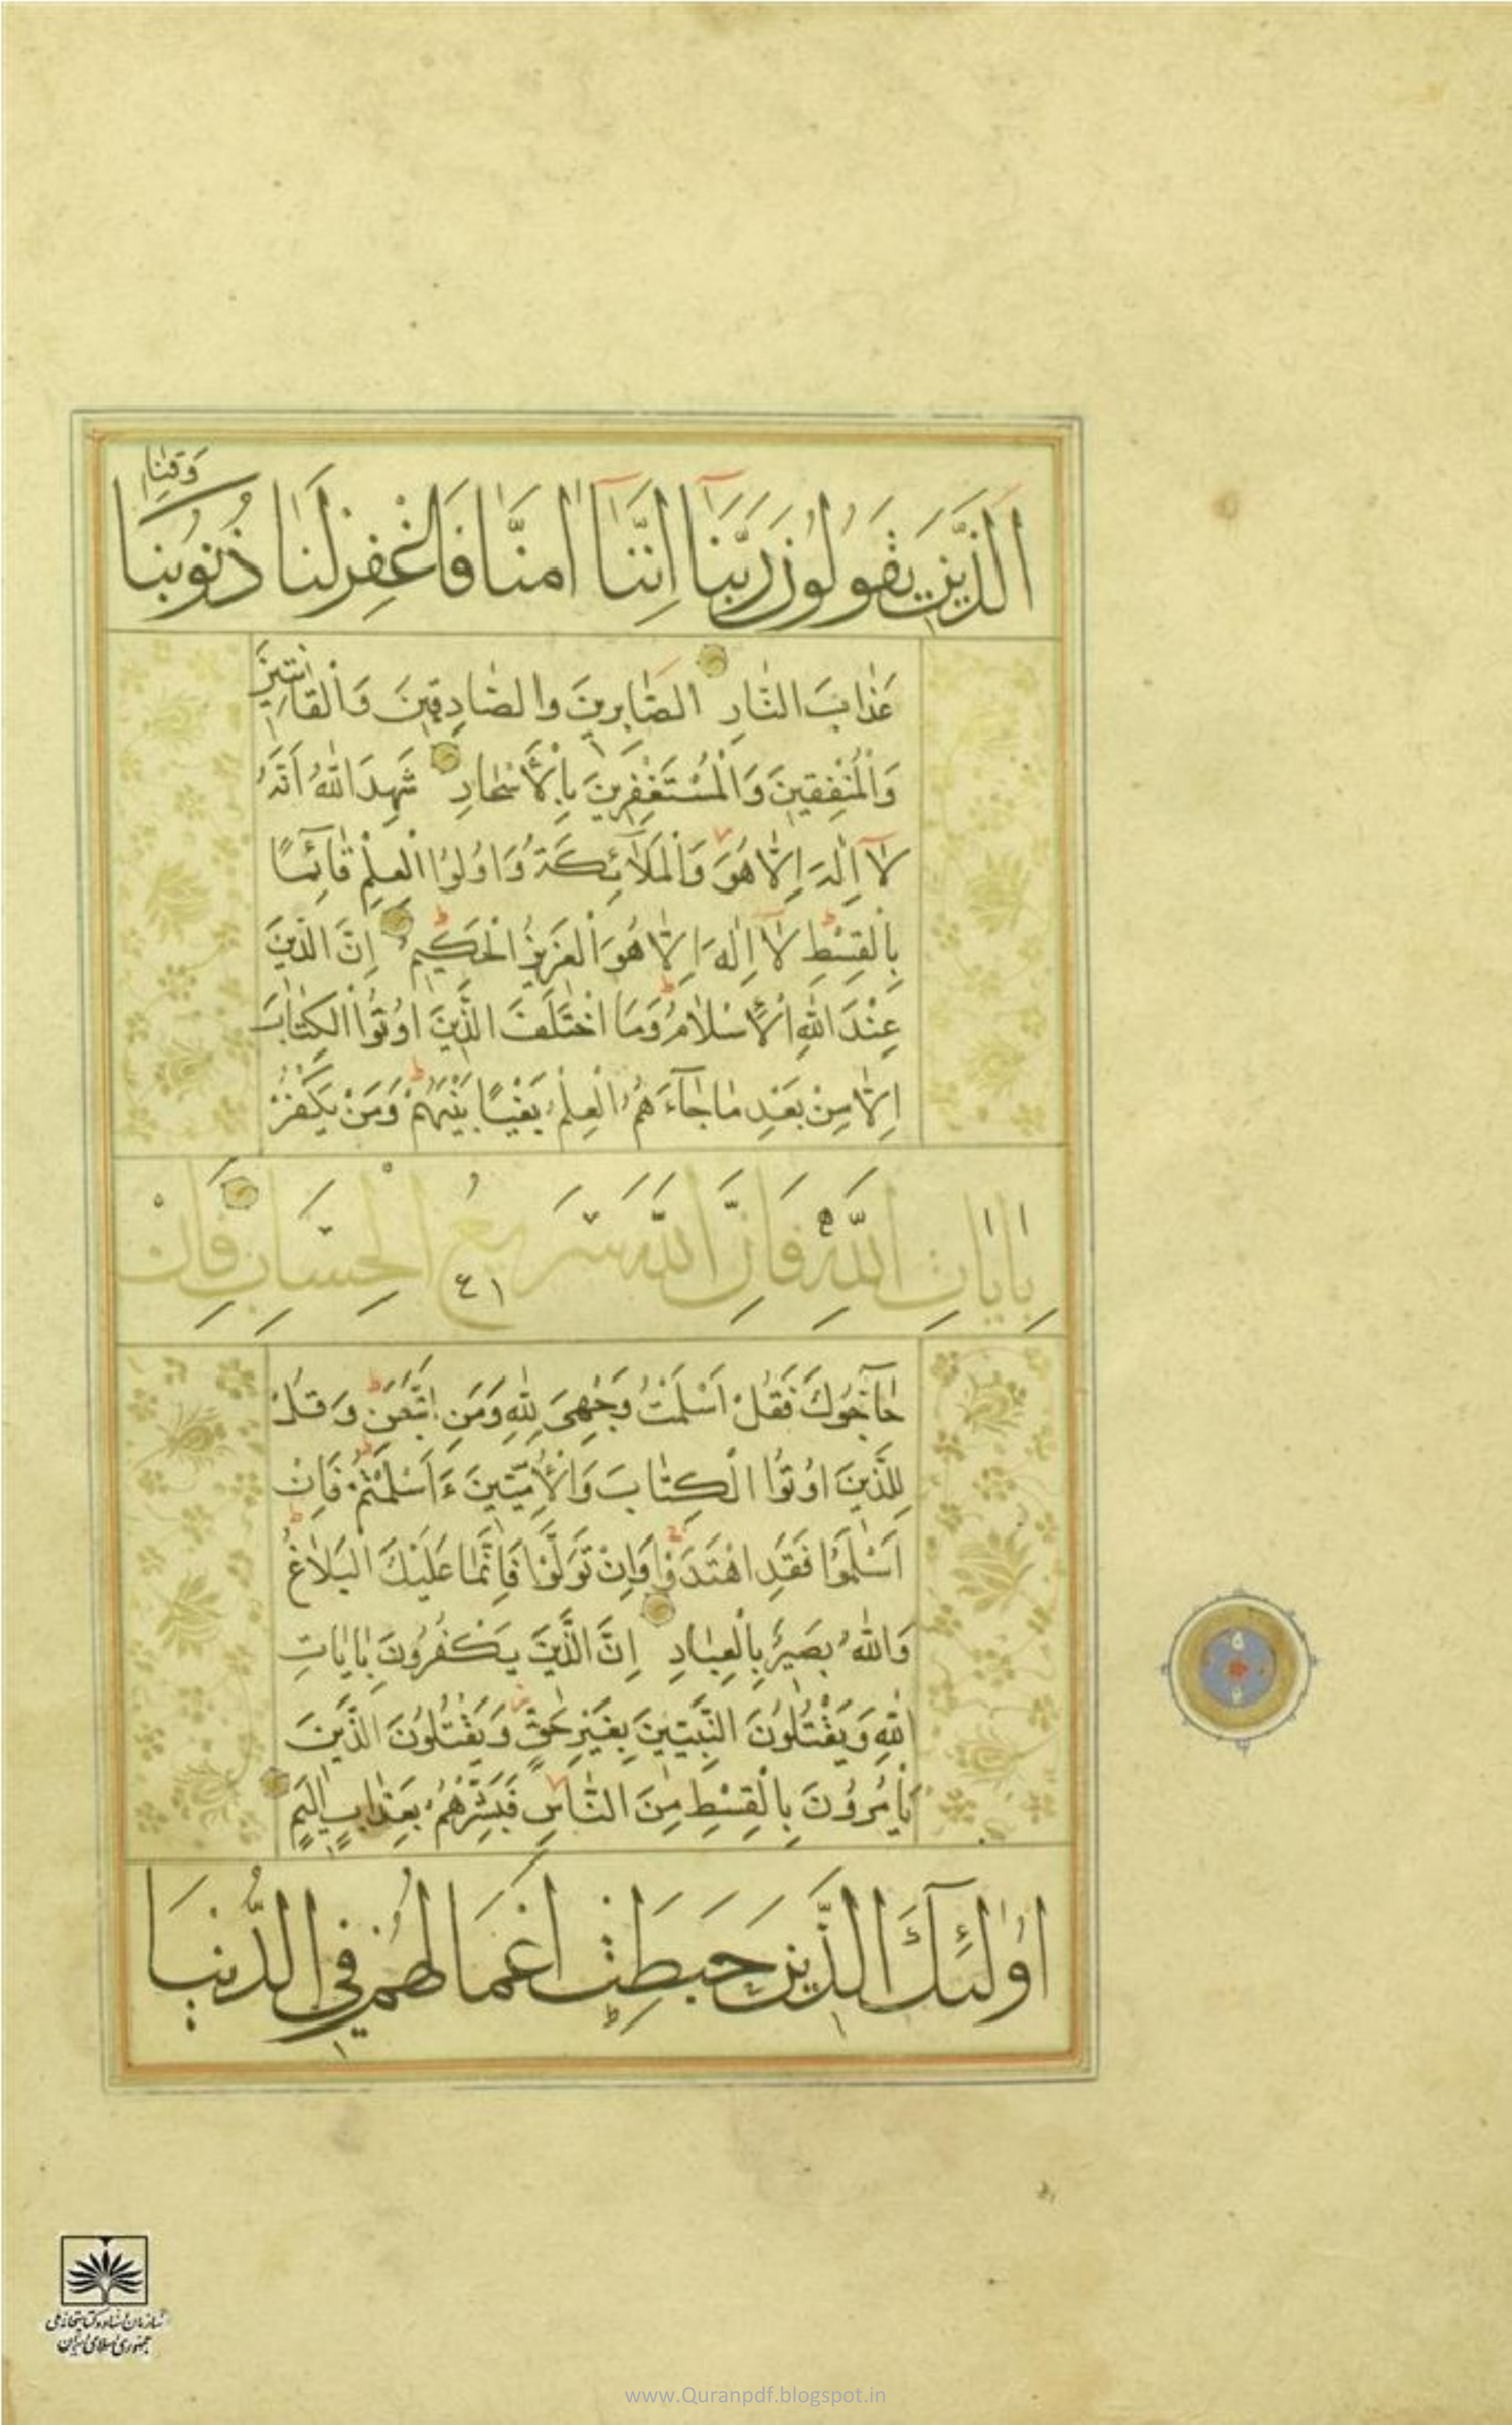 وَقِنَا
اَلَّذِينَ يَقُولُونَ رَبَّنَآ اِنَّنَآ اٰمَنَّا فَاغْفِرْ لَنَا ذُنُوبَنَا
عَذَابَ النَّارِ الصَّابِرِينَ وَالصَّادِقِينَ وَالْقَانِتِينَ
وَالْمُنْفِقِينَ وَالْمُسْتَغْفِرِينَ بِالْأَسْحَارِ شَهِدَ اللّٰهُ اَنَّهُ
لَآ اِلٰهَ اِلَّا هُوَ وَالْمَلَآئِكَةُ وَاُولُوا الْعِلْمِ قَآئِمًا
بِالْقِسْطِ لَآ اِلٰهَ اِلَّا هُوَ الْعَزِيزُ الْحَكِيمُ اِنَّ الدِّينَ
عِنْدَ اللّٰهِ الْأِسْلَامُ وَمَا اخْتَلَفَ الَّذِينَ اُوتُوا الْكِتَابَ
اِلَّا مِنْ بَعْدِ مَا جَآءَهُمُ الْعِلْمُ بَغْيًا بَيْنَهُمْ وَمَنْ يَكْفُرْ
بِاٰيَاتِ اللّٰهِ فَاِنَّ اللّٰهَ سَرِيعُ الْحِسَابِ فَاِنْ
٤١
حَآجُّوكَ فَقُلْ اَسْلَمْتُ وَجْهِيَ لِلّٰهِ وَمَنِ اتَّبَعَنِ وَقُلْ
لِلَّذِينَ اُوتُوا الْكِتَابَ وَالْأُمِّيِّينَ ءَاَسْلَمْتُمْ فَاِنْ
اَسْلَمُوا فَقَدِ اهْتَدَوْا وَاِنْ تَوَلَّوْا فَاِنَّمَا عَلَيْكَ الْبَلَاغُ
وَاللّٰهُ بَصِيرٌ بِالْعِبَادِ اِنَّ الَّذِينَ يَكْفُرُونَ بِاٰيَاتِ
اللّٰهِ وَيَقْتُلُونَ النَّبِيِّينَ بِغَيْرِ حَقٍّ وَيَقْتُلُونَ الَّذِينَ
يَأْمُرُونَ بِالْقِسْطِ مِنَ النَّاسِ فَبَشِّرْهُمْ بِعَذَابٍ اَلِيمٍ
اُولٰٓئِكَ الَّذِينَ حَبِطَتْ اَعْمَالُهُمْ فِي الدُّنْيَا
سازمان اسناد و کتابخانه ملی
جمهوری اسلامی ایران
www.Quranpdf.blogspot.in